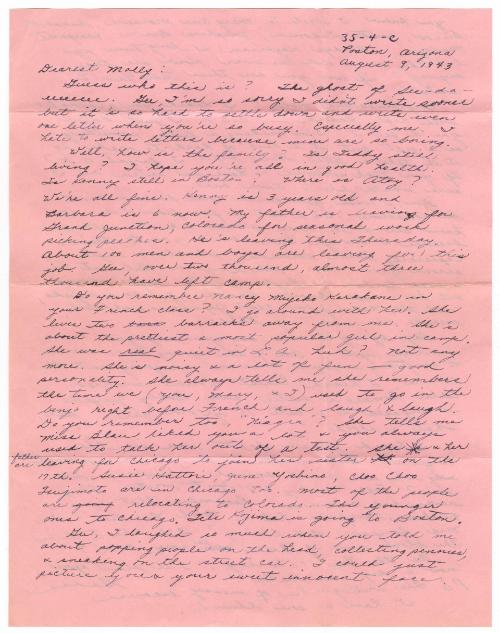 35-4-C
Poston, Arizona
August 9, 1943
Dearest Molly:
Guess who this is? The ghost of See-da-
eeeeeee. Gee, I'm so sorry I didn't write sooner
but it's so hard to settle down and write even
one letter when you're so busy. Especially me. I
hate to write letters because mine are so boring.
Well, how is the family? Is Teddy still
living? I hope you're all in good health.
Is Sonny still in Boston? Where is
We're all fine. Kenny is 3 years old and
Barbara is 6 now. My father is leaving for
Grand Junction, Colorado for seasonal work
picking peaches. He's leaving this Thursday.
About 100 men and boys are leaving for this
job. Gee, over two thousand, almost three
thousand have left camp.
Do you remember Nancy Miyeko in
your French class? I go around with her. She
lives two barracks away from me. She's
about the prettiest & most popular girl in camp.
She was real quiet in L.A. huh? Not any
more. She's noisy & a lot of fun — good
personality. She always tells me she remembers
the time we (you, Mary, & I) used to go in the
right before French and laugh & laugh.
Do you remember too "Niagra"? She tells me
Miss Blair liked you a lot & you always
used to talk her out of a test. She & her
father are leaving for Chicago to join her sister on the
17th. Susie Hattori, June Yoshino, Choo Choo
Tsujimoto are in Chicago too. Most of the people
are relocating to Colorado. The younger
ones to Chicago. Kojima is going to Boston.
Gee, I laughed so much when you told me
about popping people on the head, collecting pennies,
& sneaking on the street car. I could just
picture you & your sweet innocent face.